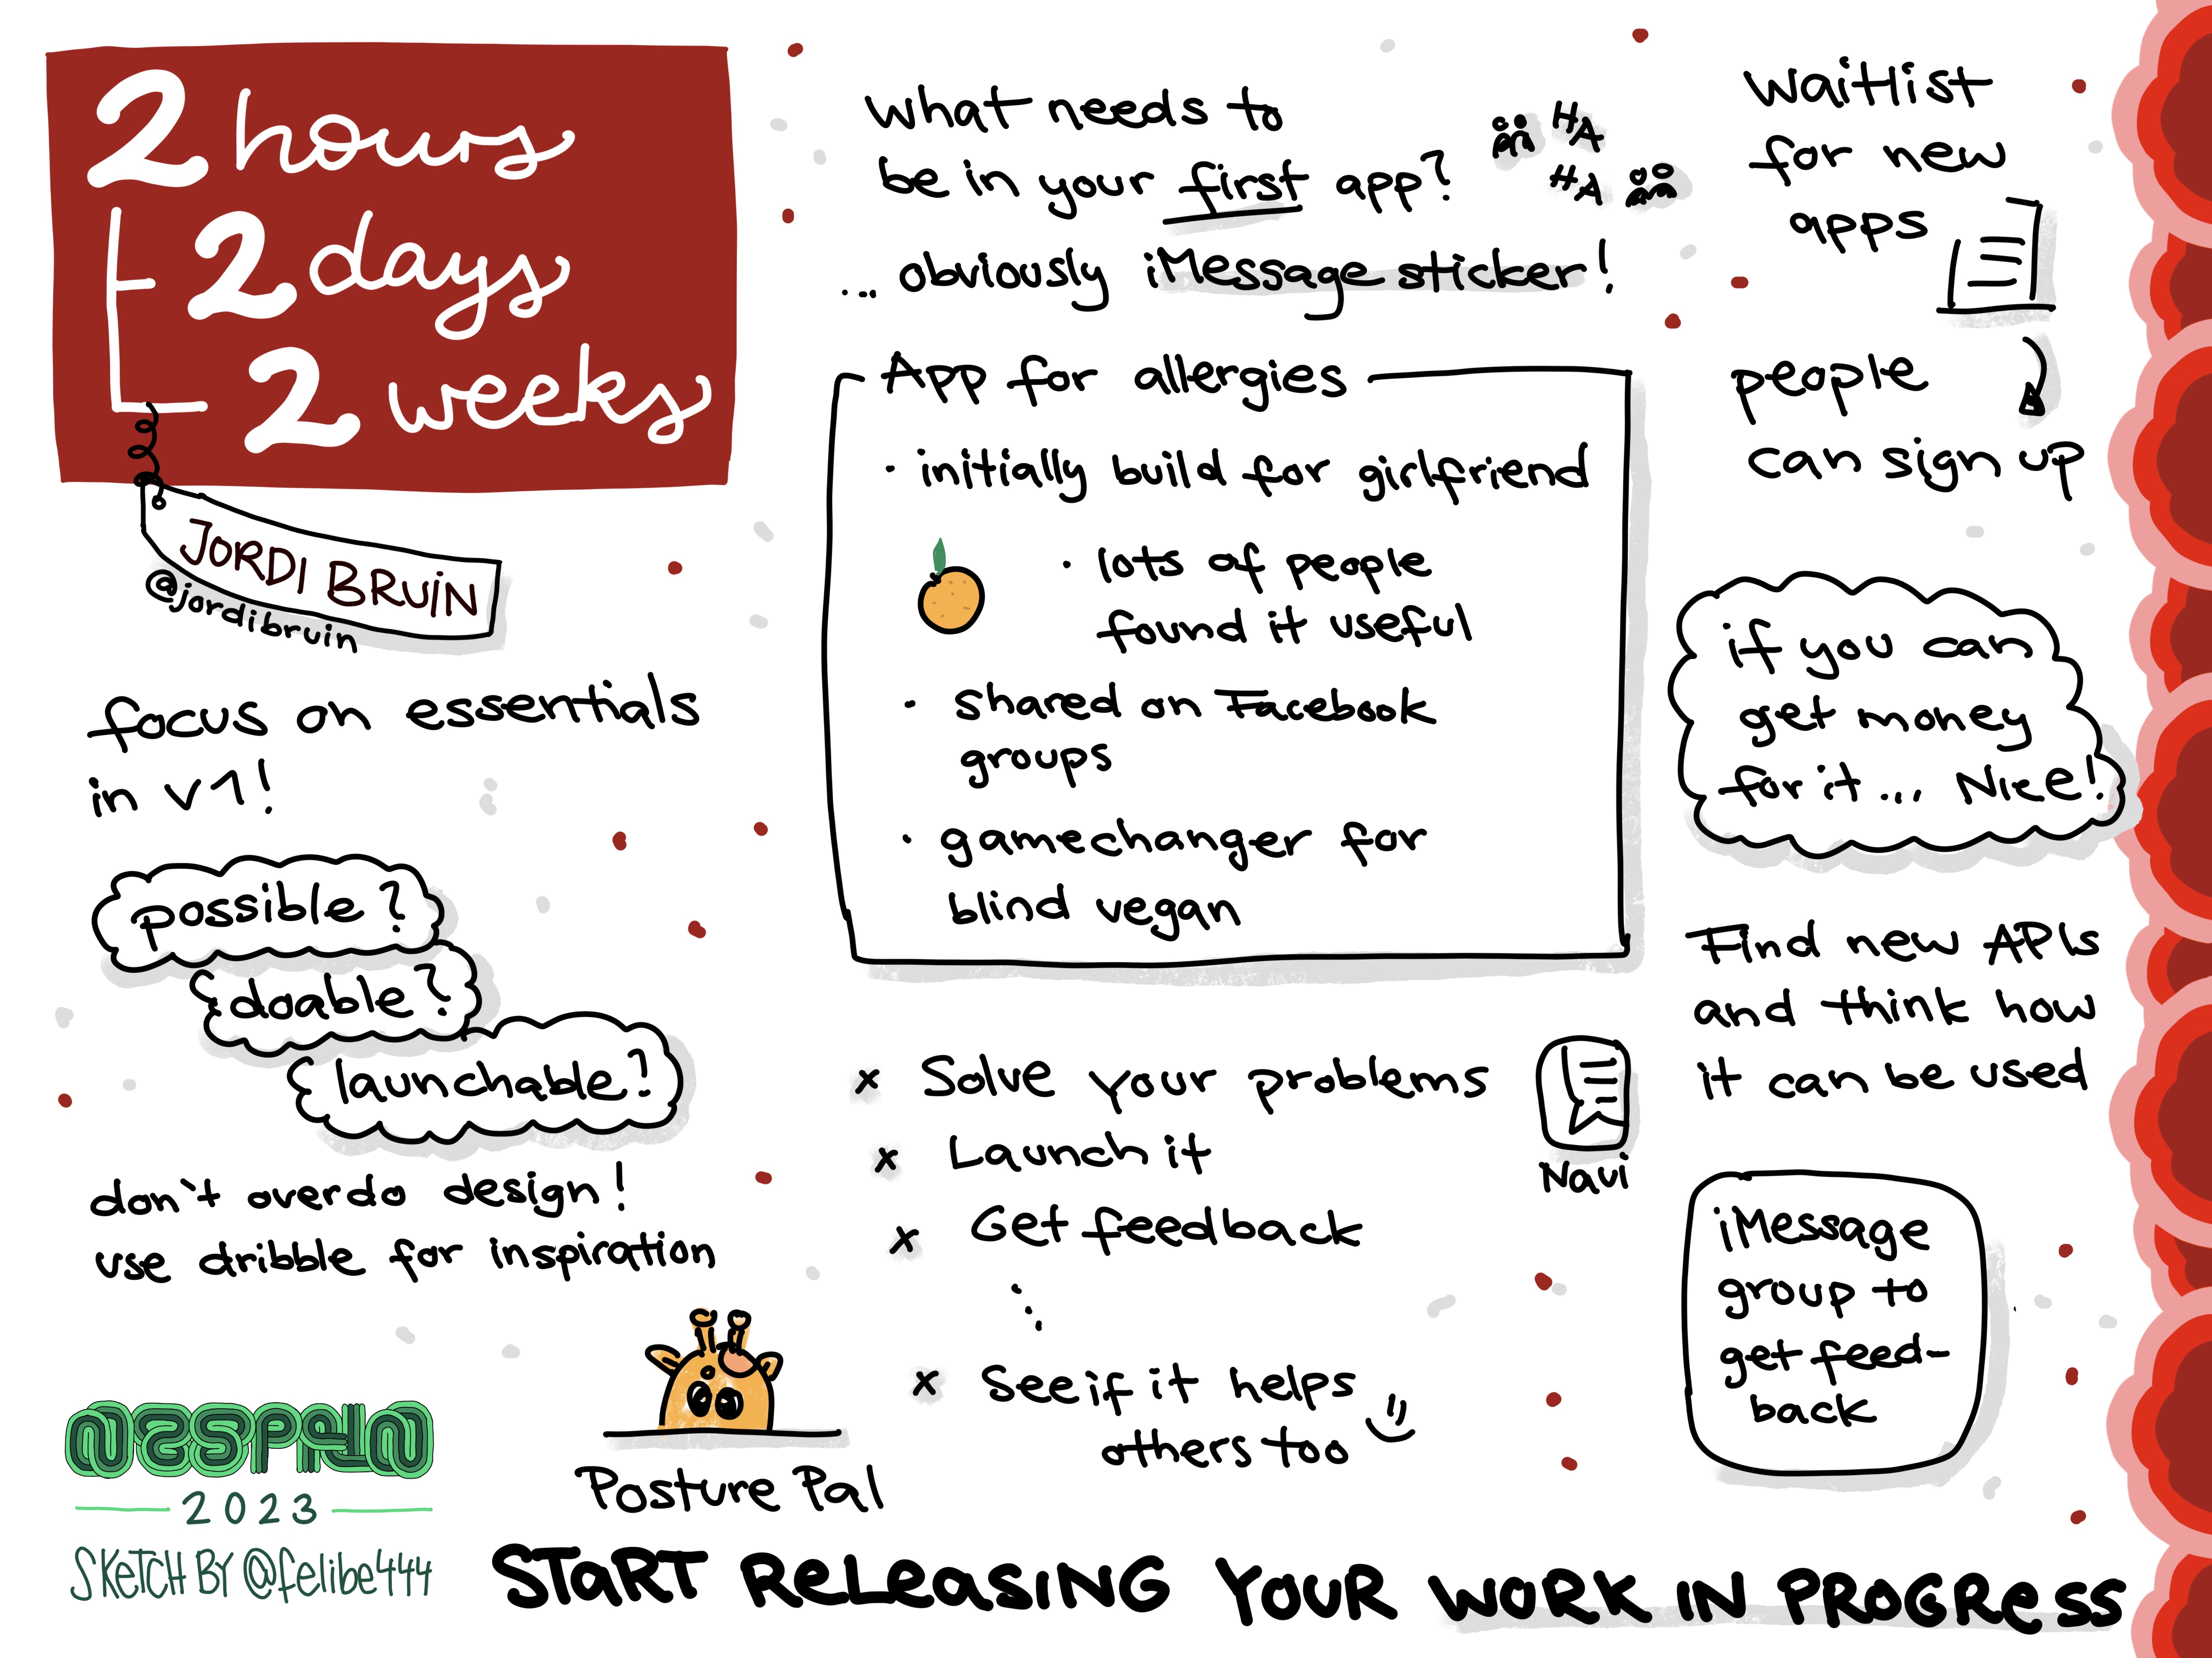 2 hours
2 days
2 weeks
JORDI BRUIN
@jordibruin
focus on essentials
in v1!
possible?
doable?
launchable?
don't overdo design!
use dribble for inspiration
Posture Pal
what needs to
be in your first app?
HA
HA
... obviously iMessage sticker!
App for allergies
· initially build for girlfriend
· lots of people
found it useful
· shared on Facebook
groups
· gamechanger for
blind vegan
x Solve your problems
x Launch it
x Get feedback
...
x See if it helps
others too
Navi
waitlist
for new
apps
people
can sign up
if you can
get money
for it... Nice!
Find new APIs
and think how
it can be used
iMessage
group to
get feed-
back
NSSPAIN
2023
SKETCH BY @felibe444
START RELEASING YOUR WORK IN PROGRESS